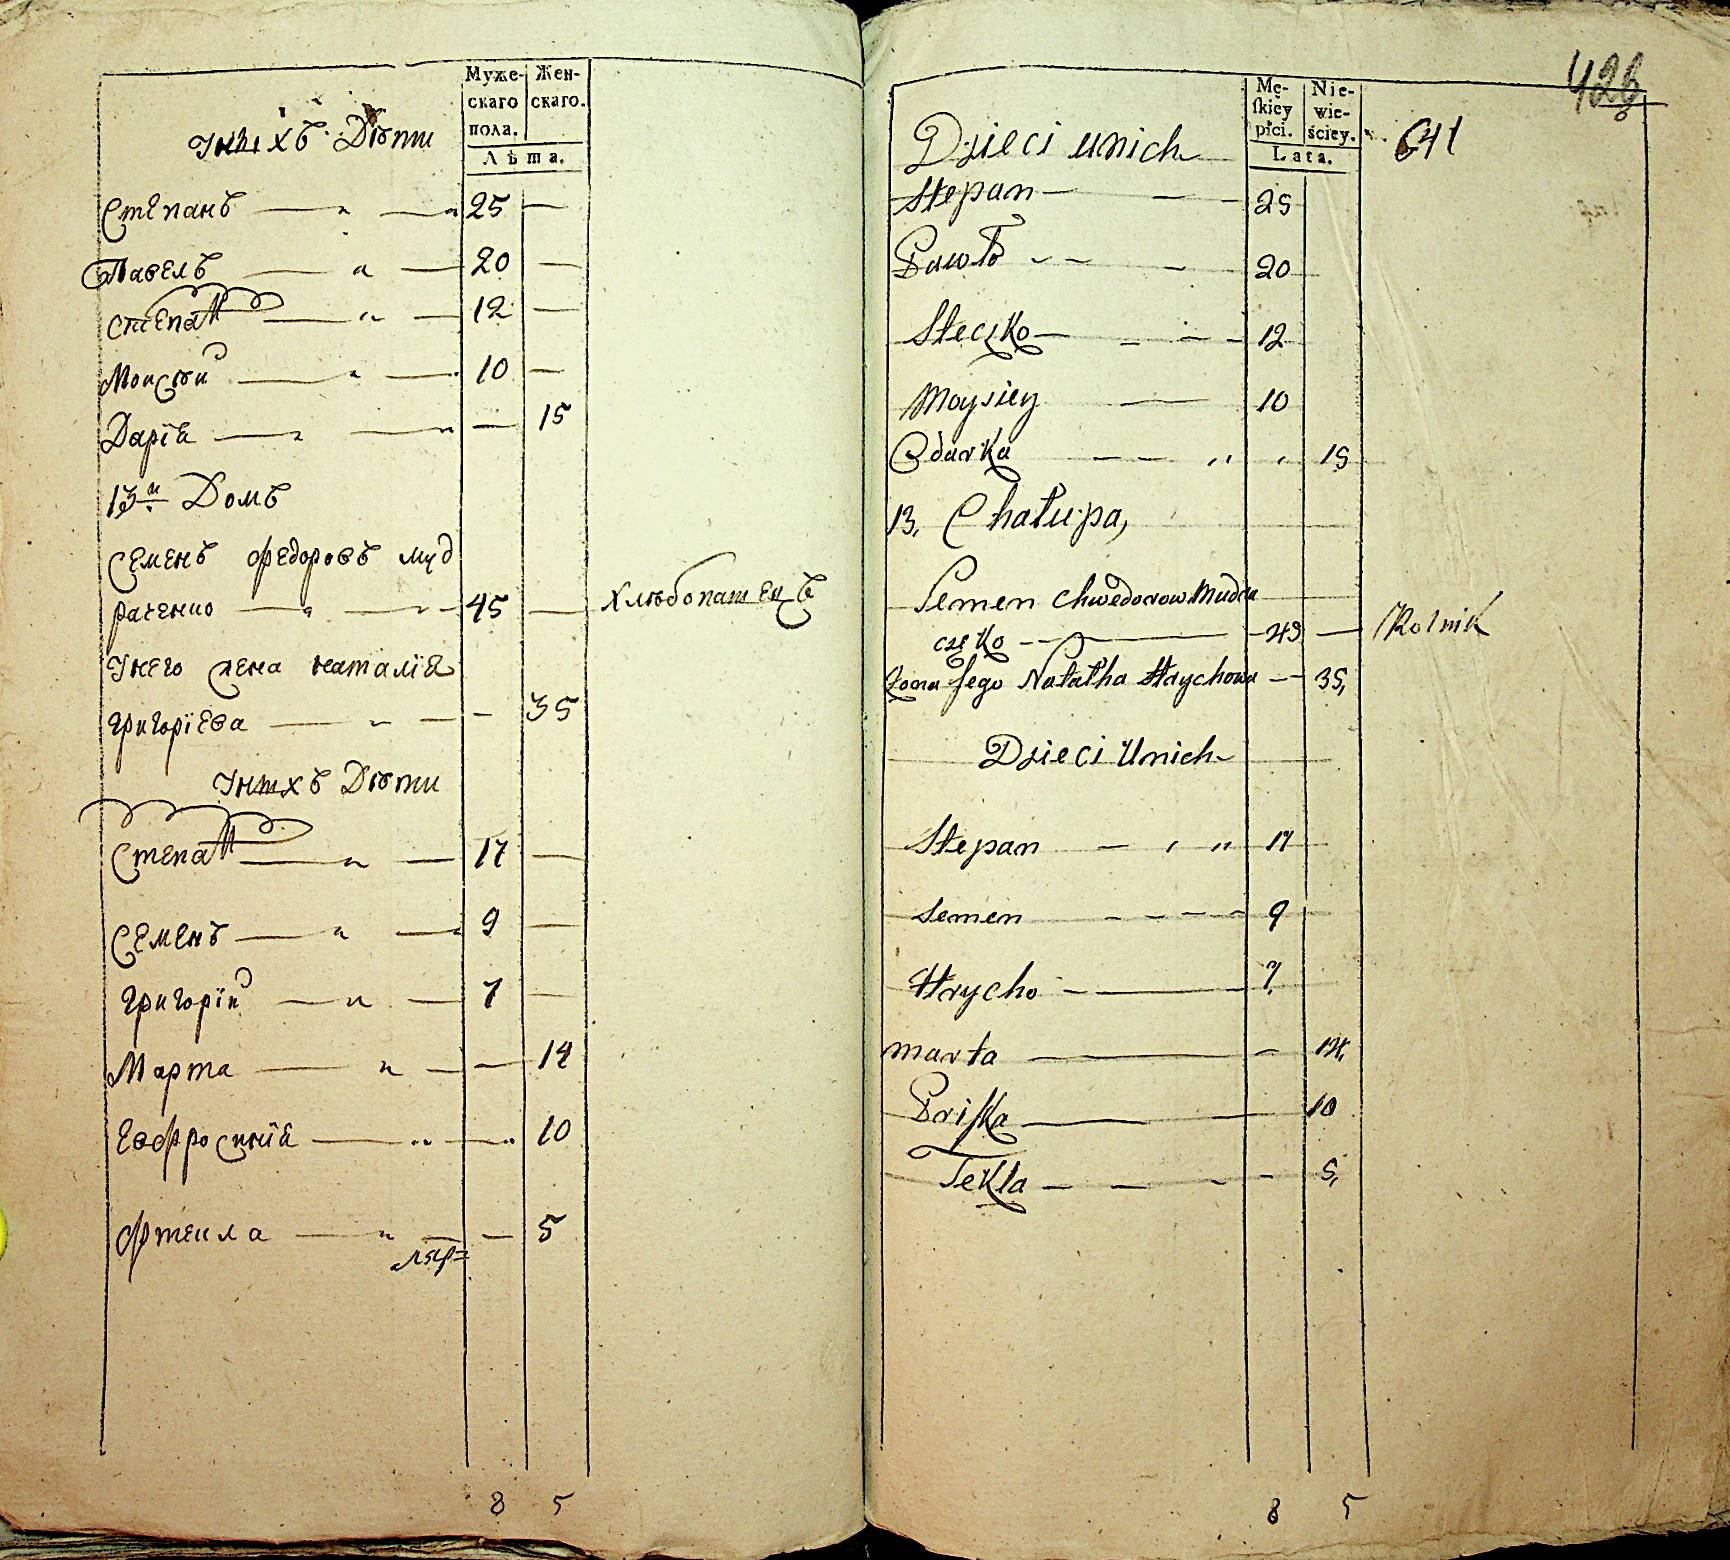 Муже-
скаго
пола.
Жен-
скаго.
Лѣта.
Унихъ Дѣти
Степанъ 25 —
Павелъ 20 —
Степан 12 —
Моисѣй 10 —
Дарїя — 15
13й Домъ
Семенъ Федоровъ Муд
раченко 45 — Хлѣбопашецъ
Унего жена Наталїя
Григорїева — 35
Унихъ Дѣти
Степан 17 —
Семенъ 9 —
Григорїй 7 —
Марта — 14
Евфросинїя — 10
Фтекла — 5
8 5
426
641
Mę-
skiey
płci.
Nie-
wie-
ściey.
Lata.
Dzieci unich
Stepan 25
Pawło 20
Steczko 12
Moysiey 10
Odarka 15
13. Chałupa,
Semen Chwedorow Mudra
czeko 45 — Rolnik
Zona jego Natałha Hrychowa — 35,
Dzieci Unich
Stepan 17
Semen 9
Hrycho 7
Marta — 14,
Priska 10
Tekla — 5,
8 5